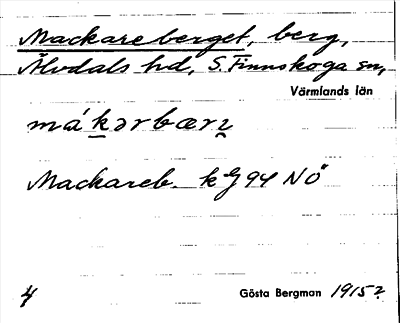 Mackareberget, berg,
Älvdals hd, S. Finnskoga sn,
Värmlands län
mákərbærı̭
Mackareb. kg 94 NÖ
4
Gösta Bergman 1915?